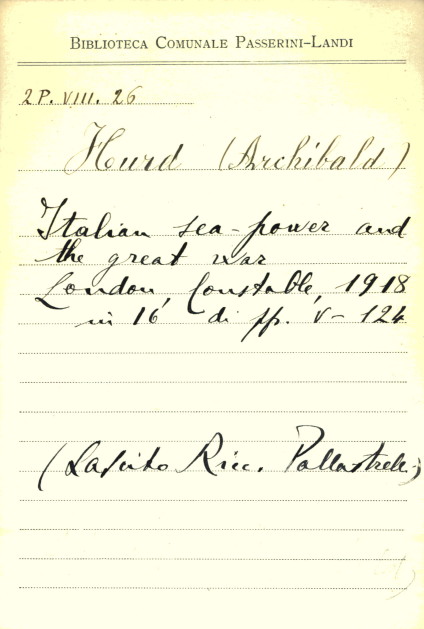 BIBLIOTECA COMUNALE PASSERINI-LANDI
2P. VIII. 26
Hurd (Archibald)
Italian sea-power and
the great war
London, Constable, 1918
in 16° di pp. V-124
(Lascito Ricc. Pallastrelli)